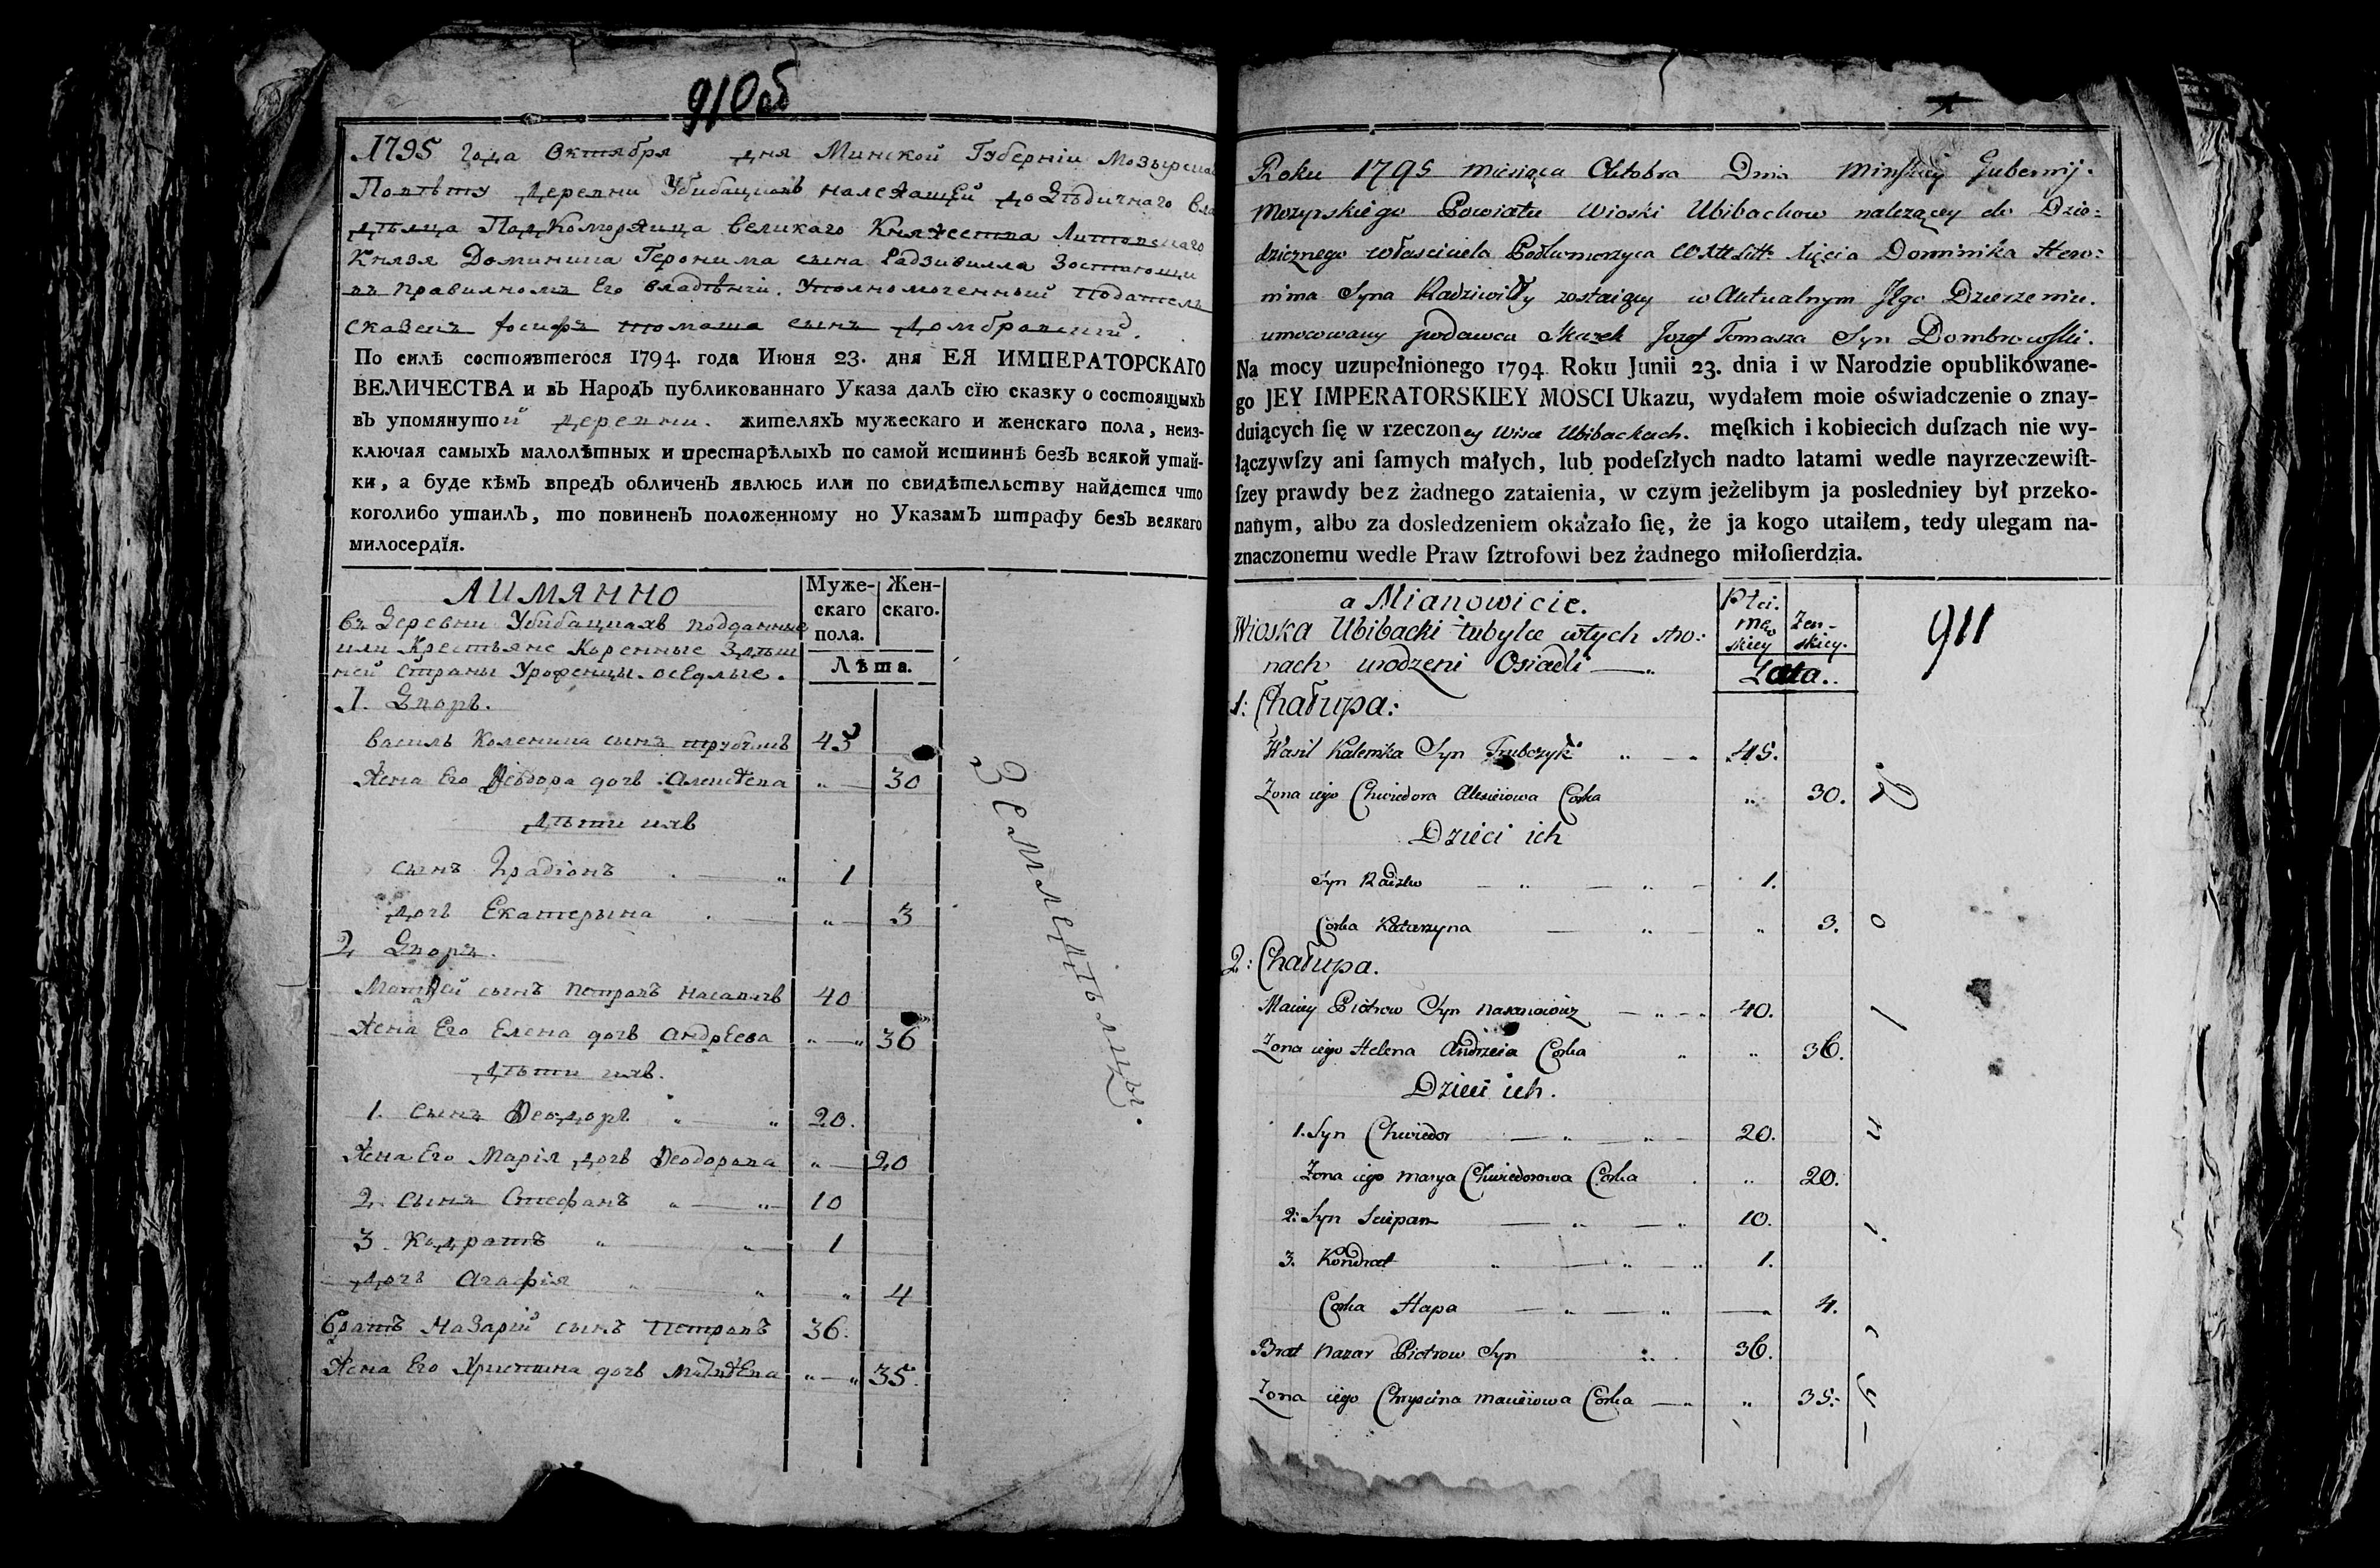 910об
1795 года Октября дня Минской Губерніи Мозырскаго
Повѣту деревни Убибацковъ належащей до Дѣдичнаго Вла
дѣльца Подкоморжица Великаго Княжества Литовскаго
Князя Доминика Геронима сына Радзивилла Зостающи
въ правилномъ Его владѣніи. Уполномоченный Податель
сказокъ Іосифъ Томаша сынъ Домбровский.
По силѣ состоявшегося 1794. года Июня 23. дня ЕЯ ИМПЕРАТОРСКАГО
ВЕЛИЧЕСТВА и въ Народъ публикованнаго Указа далъ сїю сказку о состоящыхъ
въ упомянутой деревни. жителяхъ мужескаго и женскаго пола, неиз-
ключая самыхъ малолѣтных и престарѣлыхъ по самой истиннѣ безъ всякой утай-
ки, а буде кѣмъ впредъ обличенъ явлюсь или по свидѣтельству найдется что
коголибо утаилъ, то повиненъ положенному по Указамъ штрафу безъ всякаго
милосердїя.
АИМЯННО
въ Деревни Убибацкахъ подданные
или Крестьяне Коренные Здѣш
ней страны Уроженцы. осѣдлые.
Муже-
скаго
пола.
Жен-
скаго.
Лѣта.
1. Дворъ.
Василь Коленика сынъ Трубчикъ 45
Жена Его Ѳеодора дочъ Алексѣева " 30
Дѣти ихъ
сынъ Ирадіонъ " 1
дочъ Екатерына " 3
2 Дворъ.
Матѳей сынъ Петровъ Насановичъ 40
Жена Его Елена дочъ Андрѣева " 36
Дѣти ихъ.
1. Сынъ Ѳеодоръ " 20.
Жена Его Марія дочъ Ѳеодорова " 20
2. Сынъ Стефанъ " 10
3. Кодратъ " 1
дочъ Агафія " 4
Братъ Назарій сынъ Петровъ 36.
Жена Его Христина дочъ Матѳѣева " 35.
Земледѣльцы.
Roku 1795 Miesiąca Oktobra Dnia Minskiey Gubernij.
Mozyrskiego Powiatu Wioski Ubibackow należącey do Dzie:
dzicznego właściciela Podkomorzyca WXLitt: Xięcia Dominika Hero:
nima Syna Radziwiłły zostaiącey w Aktualnym Jego Dzierzeniu.
umocowany podawca Skazek Jozef Tomasza Syn Dombrowſki.
Na mocy uzupełnionego 1794 Roku Junii 23. dnia i w Narodzie opublikowane-
go JEY IMPERATORSKIEY MOSCI Ukazu, wydałem moie oświadczenie o znay-
duiących ſię w rzeczoney Wisce Ubibackach. męſkich i kobiecich duſzach nie wy-
łączywſzy ani ſamych małych, lub podeſzłych nadto latami wedle nayrzeczewiſt-
ſzey prawdy bez żadnego zataienia, w czym jeżelibym ja posledniey był przeko-
nanym, albo za dosledzeniem okázało ſię, że ja kogo utaiłem, tedy ulegam na-
znaczonemu wedle Praw ſztrofowi bez żadnego miłoſierdzia.
a Mianowicie.
Wioska Ubibacki tubylce wtych stro:
nach urodzeni Osiadli
Płci.
mę
skiey
Żen-
skiey.
Lata.
911
1: Chałupa:
Wasil Kalenika Syn Trubczyk " 45.
Żona iego Chwiedora Alexieiowa Corka " 30.
Dzieci ich
Syn Radzko " 1.
Corka Katarzyna " 3.
2: Chałupa.
Maciey Piotrow Syn Nasanowicz " 40.
Żona iego Helena Andrzeia Corka " 36.
Dzieci ich.
1. Syn Chwiedor " 20.
Żona iego Marya Chwiedorowa Corka " 20.
2: Syn Sciepan " 10.
3. Kondrat " 1.
Corka Hapa " 4.
Brat Nazar Piotrow Syn 36.
Żona iego Chryscina Macieiowa Corka " 35.